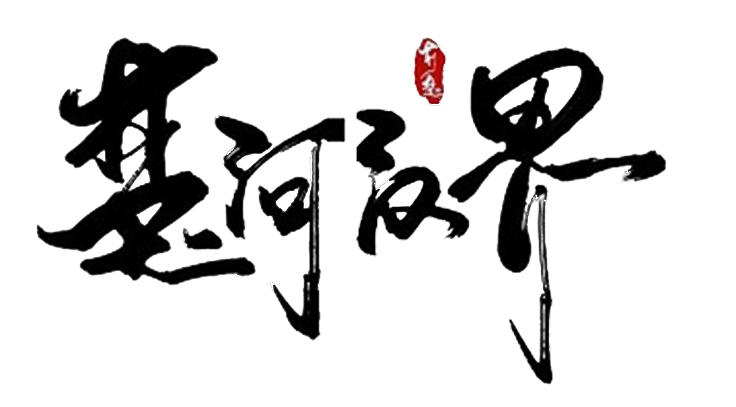 楚河汉界